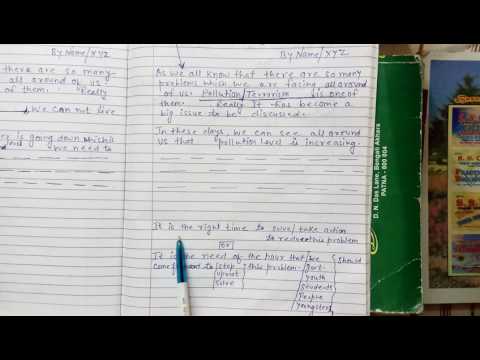 By Name/XYZ
there are so many
all around of us.
of them. Really
We can not live
is going down which is
we need to
By Name/XYZ
As we all know that there are so many
problems which we are facing all around
of us. Pollution/Terrorism is one of
them. Really It has become a
big issue to be discussed.
In these days, we can see all around
us that pollution level is increasing.
It is the right time to solve/take action
to reduce this problem
or
It is the need of the hour that we should
come forward to stop this problem. Govt.
uproot youth
solve students
People
youngsters
D. N. Das Lane, Bengali Akhara
PATNA - 800 004